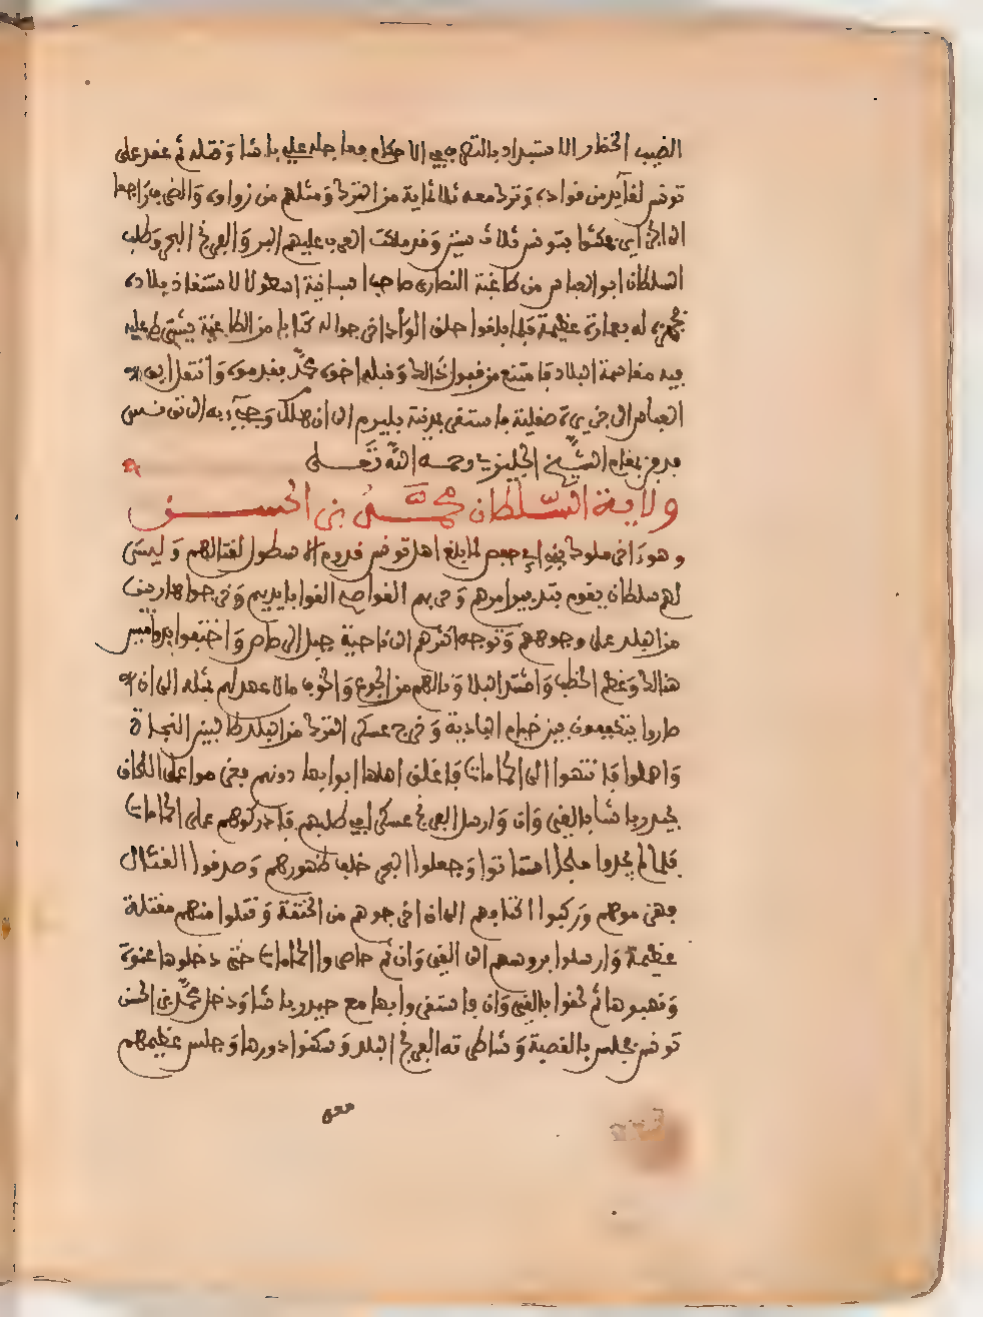 القيب الخطار الاستبداد بالتصرف في الاحكام فعاجله علي باشا وقتله ثم عقد على
تونس لقايد من قواده وترك معه ثلاثماية من الترك ومثلهم من زواوه وانصرف راجعا
الى الجزاير فمكثوا بتونس ثلاث سنين وقد ملكت العرب عليهم البر والافرنج البحر وطلب
السلطان ابو العباس من طاغية النصارى صاحب اسبانية اسطولا لاستنقاذ بلاده
فجهزه له بعمارة عظيمة فلما بلغوا حلق الوادي اخرجوا له كتابا من الطاغية يشترط عليه
فيه مقاسمة البلاد فامتنع من قبول ذالك وقبله اخوه محمد فقدموه وانتقل ابو
العباس الى جزيرة صقلية فاستقر بمدينة بليرم الى ان هلك وجيء به الى تونس
فدفن بمقام الشيخ الجليزي رحمه الله تعلى
ولاية السلطان محمد بن الحسن
وهو اخر ملوك بني ابي حفص لما بلغ اهل تونس قدوم الاسطول لقتالهم وليس
لهم سلطان يقوم بتدبير امرهم وحربهم القواصي القوا بايديهم وخرجوا هاربين
من البلد على وجوههم وتوجه اكثرهم الى ناحية جبل الرصاص واختفوا
هنالك وعظم الخطب واشتد البلا ونالهم من الجوع والخوف مالا عهد لهم بمثله الى ان
صاروا يتكففون بين خيام البادية وخرج عسكر الترك من البلد طالبين النجاة
واهلوا فانتهوا الى الحمامات فاغلق اهلها ابوابها دونهم فعزموا على اللحاق
بحيدر باشا بالقيروان وارسل الافرنج عسكرا في طلبهم فادركوهم على الحمامات
فلما لم يجدوا ملجا استماتوا وجعلوا البحر خلف ظهورهم وصدقوا القتال
فهزموهم وركبوا اكتافهم الى ان اخرجوهم من الخنقة وقتلوا منهم مقتلة
عظيمة وارسلوا بروسهم الى القيروان ثم حاصروا الحمامات حتى دخلوها عنوة
ونهبوها ثم لحقوا بالقيروان فاستقروا بها مع حيدر باشا ودخل محمد بن الحسن
تونس فجلس بالقصبة وشاطرته الافرنج البلد وسكنوا دورها وجلس عظيمهم
معه